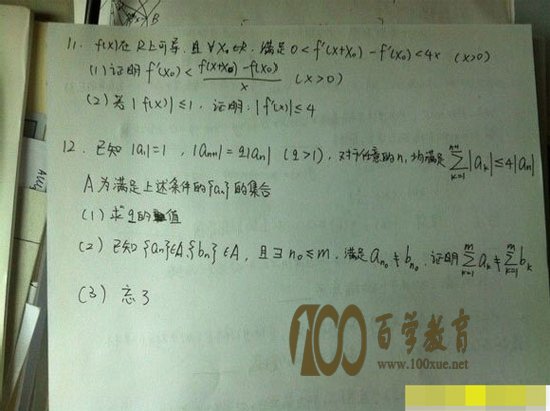 11. f(x)在 R上可导,且 ∀x₀∈R,满足 0<f'(x+x₀)-f'(x₀)<4x (x>0)
(1)证明 f'(x₀)< f(x+x₀)-f(x₀) / x (x>0)
(2)若|f(x)|≤1, 证明:|f'(x)|≤4
12. 已知 |a₁|=1, |aₙ₊₁|=q|aₙ| (q>1), 对于任意的n,均满足 ∑ₖ₌₁ⁿ⁺¹|aₖ|≤4|aₙ|
A 为满足上述条件的{aₙ}的集合
(1) 求q的值
(2) 已知{aₙ}∈A,{bₙ}∈A, 且∃ n₀≤m, 满足 aₙ₀≠bₙ₀, 证明 ∑ₖ₌₁ᵐ aₖ≠∑ₖ₌₁ᵐ bₖ
(3) 忘了
100 百学教育
www.100xue.net